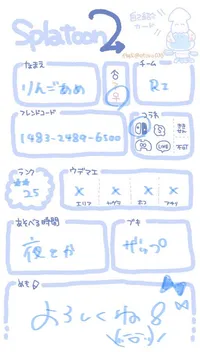 Splatoon 2
自己紹介カード
なまえ
りんごあめ
♂
♀
チーム
フレンドコード
1483-2489-6500
コラボ
LINE
不可
ランク
★★
25
ウデマエ
X X X X
エリア ヤグラ ホコ アサリ
あそべる時間
夜とか
ブキ
ザップ
めも
よろしくね!